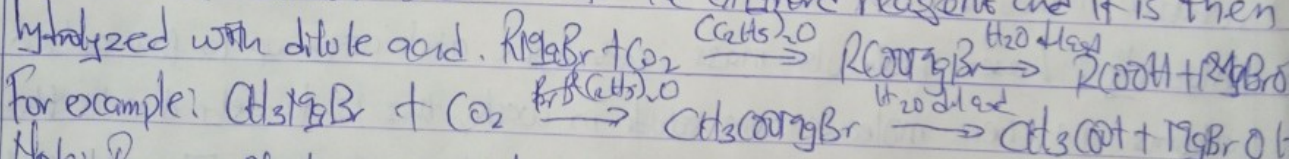 reagent and it is then
hydrolyzed with dilute acid. RMgBr + CO2 (C2H5)2O → RCOOMgBr H2O dil acid → RCOOH + MgBrO
For example: CH3MgBr + CO2 (C2H5)2O → CH3COOMgBr H2O dil acid → CH3COOH + MgBrOH
Note: ①